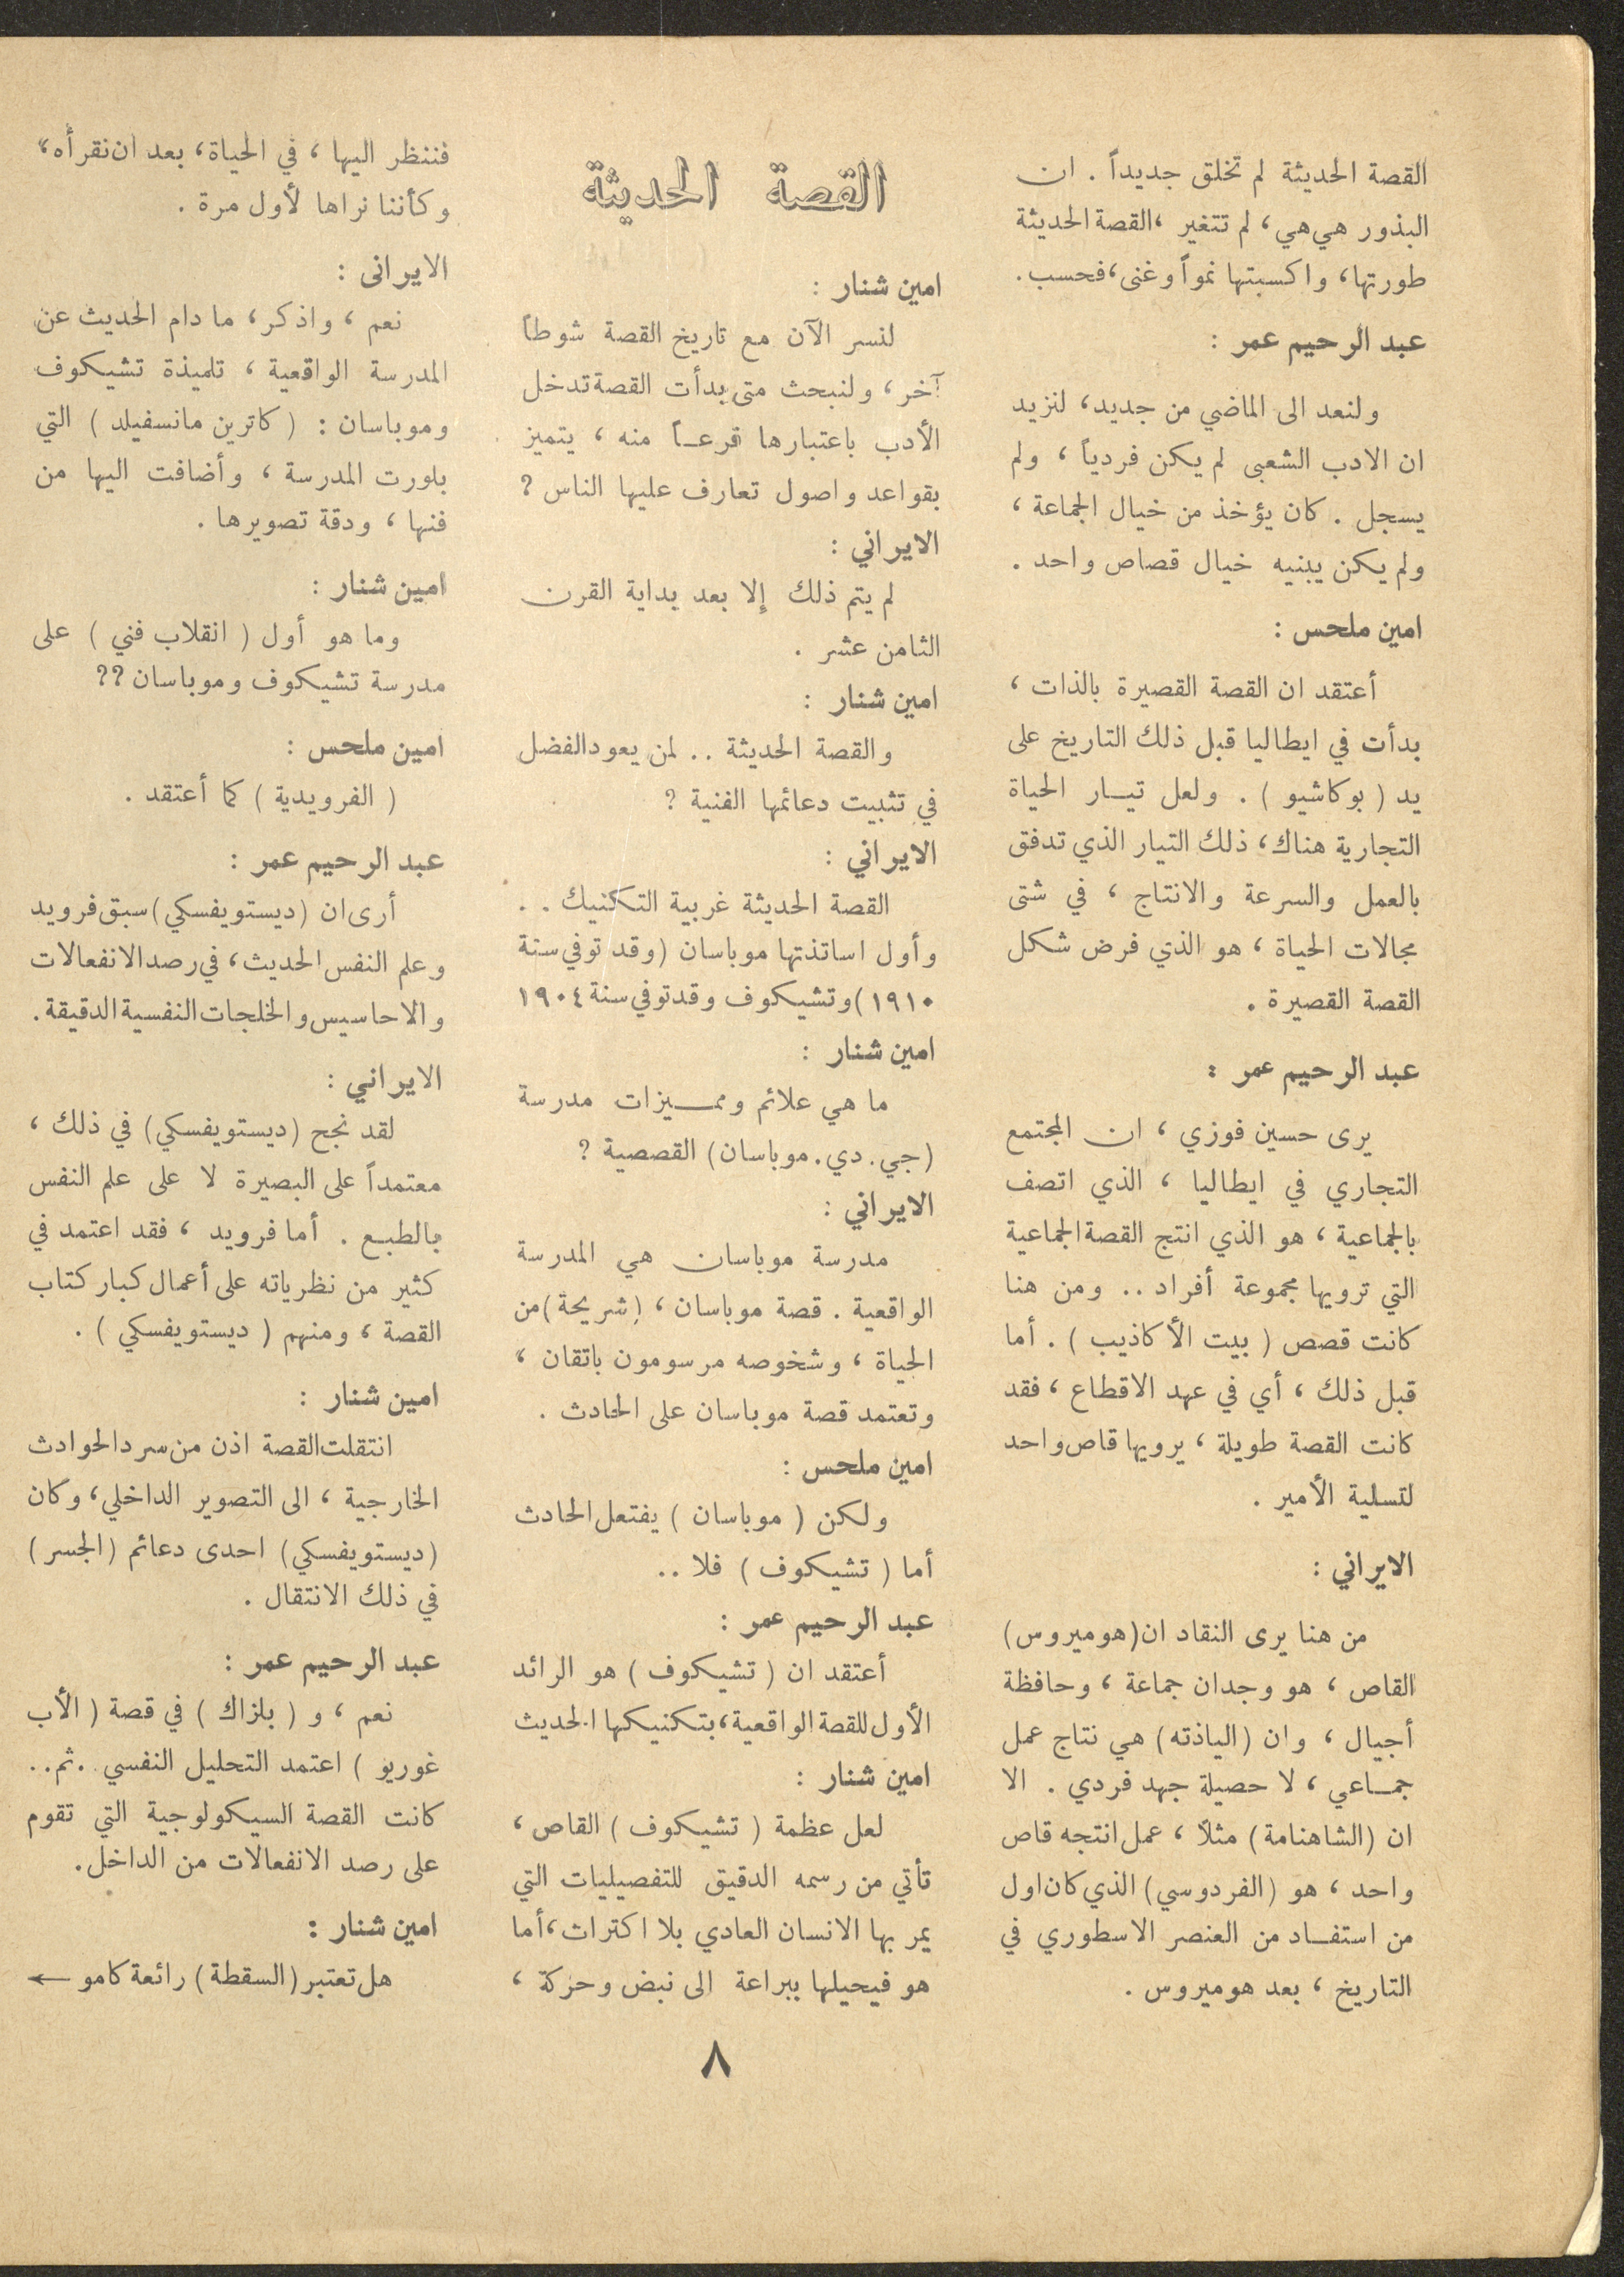 القصة الحديثة لم تخلق جديداً . ان
البذور هي هي، لم تتغير ،القصة الحديثة
طورتها، واكسبتها نمواً وغنى،فحسب.
عبد الرحيم عمر :
ولنعد الى الماضي من جديد، لنزيد
ان الادب الشعبى لم يكن فردياً ، ولم
يسجل . كان يؤخذ من خيال الجماعة ،
ولم يكن يبنيه خيال قصاص واحد .
امين ملحس :
أعتقد ان القصة القصيرة بالذات ،
بدأت في ايطاليا قبل ذلك التاريخ على
يد ( بوكاشيو ) . ولعل تيـار الحياة
التجارية هناك، ذلك التيار الذي تدفق
بالعمل والسرعة والانتاج ، في شتى
مجالات الحياة ، هو الذي فرض شكل
القصة القصيرة .
عبد الرحيم عمر :
يرى حسين فوزي ، ان المجتمع
التجاري في ايطاليا ، الذي اتصف
بالجماعية ، هو الذي انتج القصة الجماعية
التي ترويها مجموعة أفراد .. ومن هنا
كانت قصص ( بيت الأكاذيب ) . أما
قبل ذلك ، أي في عهد الاقطاع ، فقد
كانت القصة طويلة ، يرويها قاص واحد
لتسلية الأمير .
الايراني :
من هنا يرى النقاد ان(هوميروس)
القاص ، هو وجدان جماعة ، وحافظة
أجيال ، وان (الياذته) هي نتاج عمل
جمـاعي ، لا حصيلة جهد فردي . الا
ان (الشاهنامة) مثلاً ، عمل انتجه قاص
واحد ، هو (الفردوسي) الذي كان اول
من استفـاد من العنصر الاسطوري في
التاريخ ، بعد هوميروس .
القصة الحديثة
امين شنار :
لنسر الآن مع تاريخ القصة شوطاً
آخر ، ولنبحث متى بدأت القصة تدخل
الأدب باعتبارها فرعـاً منه ، يتميز
بقواعد واصول تعارف عليها الناس ?
الايراني :
لم يتم ذلك إلا بعد بداية القرن
الثامن عشر .
امين شنار :
والقصة الحديثة .. لمن يعود الفضل
في تثبيت دعائمها الفنية ?
الايراني :
القصة الحديثة غربية التكنيك ..
وأول اساتذتها موباسان (وقد توفي سنة
١٩١٠)وتشيكوف وقد توفي سنة ١٩٠٤
امين شنار :
ما هي علائم ومميـزات مدرسة
(جي. دي. موباسان) القصصية ?
الايراني :
مدرسة موباسان هي المدرسة
الواقعية . قصة موباسان ، (شريحة)من
الحياة ، وشخوصه مرسومون باتقان ،
وتعتمد قصة موباسان على الحادث .
امين ملحس :
ولكن ( موباسان ) يفتعل الحادث
أما ( تشيكوف ) فلا ..
عبد الرحيم عمر :
أعتقد ان ( تشيكوف ) هو الرائد
الأول للقصة الواقعية،بتكنيكها الحديث
امين شنار :
لعل عظمة ( تشيكوف ) القاص ،
تأتي من رسمه الدقيق للتفصيليات التي
يمر بها الانسان العادي بلا اكتراث،أما
هو فيحيلها ببراعة الى نبض وحركة ،
فننظر اليها ، في الحياة، بعد ان نقرأه،
وكأننا نراها لأول مرة .
الايرانى :
نعم ، واذكر، ما دام الحديث عن
المدرسة الواقعية ، تلميذة تشيكوف
وموباسان : ( كاترين مانسفيلد ) التي
بلورت المدرسة ، وأضافت اليها من
فنها ، ودقة تصويرها .
امين شنار :
وما هو أول ( انقلاب فني ) على
مدرسة تشيكوف وموباسان ??
امين ملحس :
( الفرويدية ) كما أعتقد .
عبد الرحيم عمر :
أرى ان (ديستويفسكي) سبق فرويد
وعلم النفس الحديث، في رصد الانفعالات
والاحاسيس والخلجات النفسية الدقيقة.
الايراني :
لقد نجح (ديستويفسكي) في ذلك ،
معتمداً على البصيرة لا على علم النفس
بالطبـع . أما فرويد ، فقد اعتمد في
كثير من نظرياته على أعمال كبار كتاب
القصة ، ومنهم ( ديستويفسكي ) .
امين شنار :
انتقلت القصة اذن من سرد الحوادث
الخارجية ، الى التصوير الداخلي، وكان
(ديستويفسكي) احدى دعائم (الجسر)
في ذلك الانتقال .
عبد الرحيم عمر :
نعم ، و ( بلزاك ) في قصة ( الأب
غوريو ) اعتمد التحليل النفسي . ثم..
كانت القصة السيكولوجية التي تقوم
على رصد الانفعالات من الداخل.
امين شنار :
هل تعتبر (السقطة) رائعة كامو ←
٨